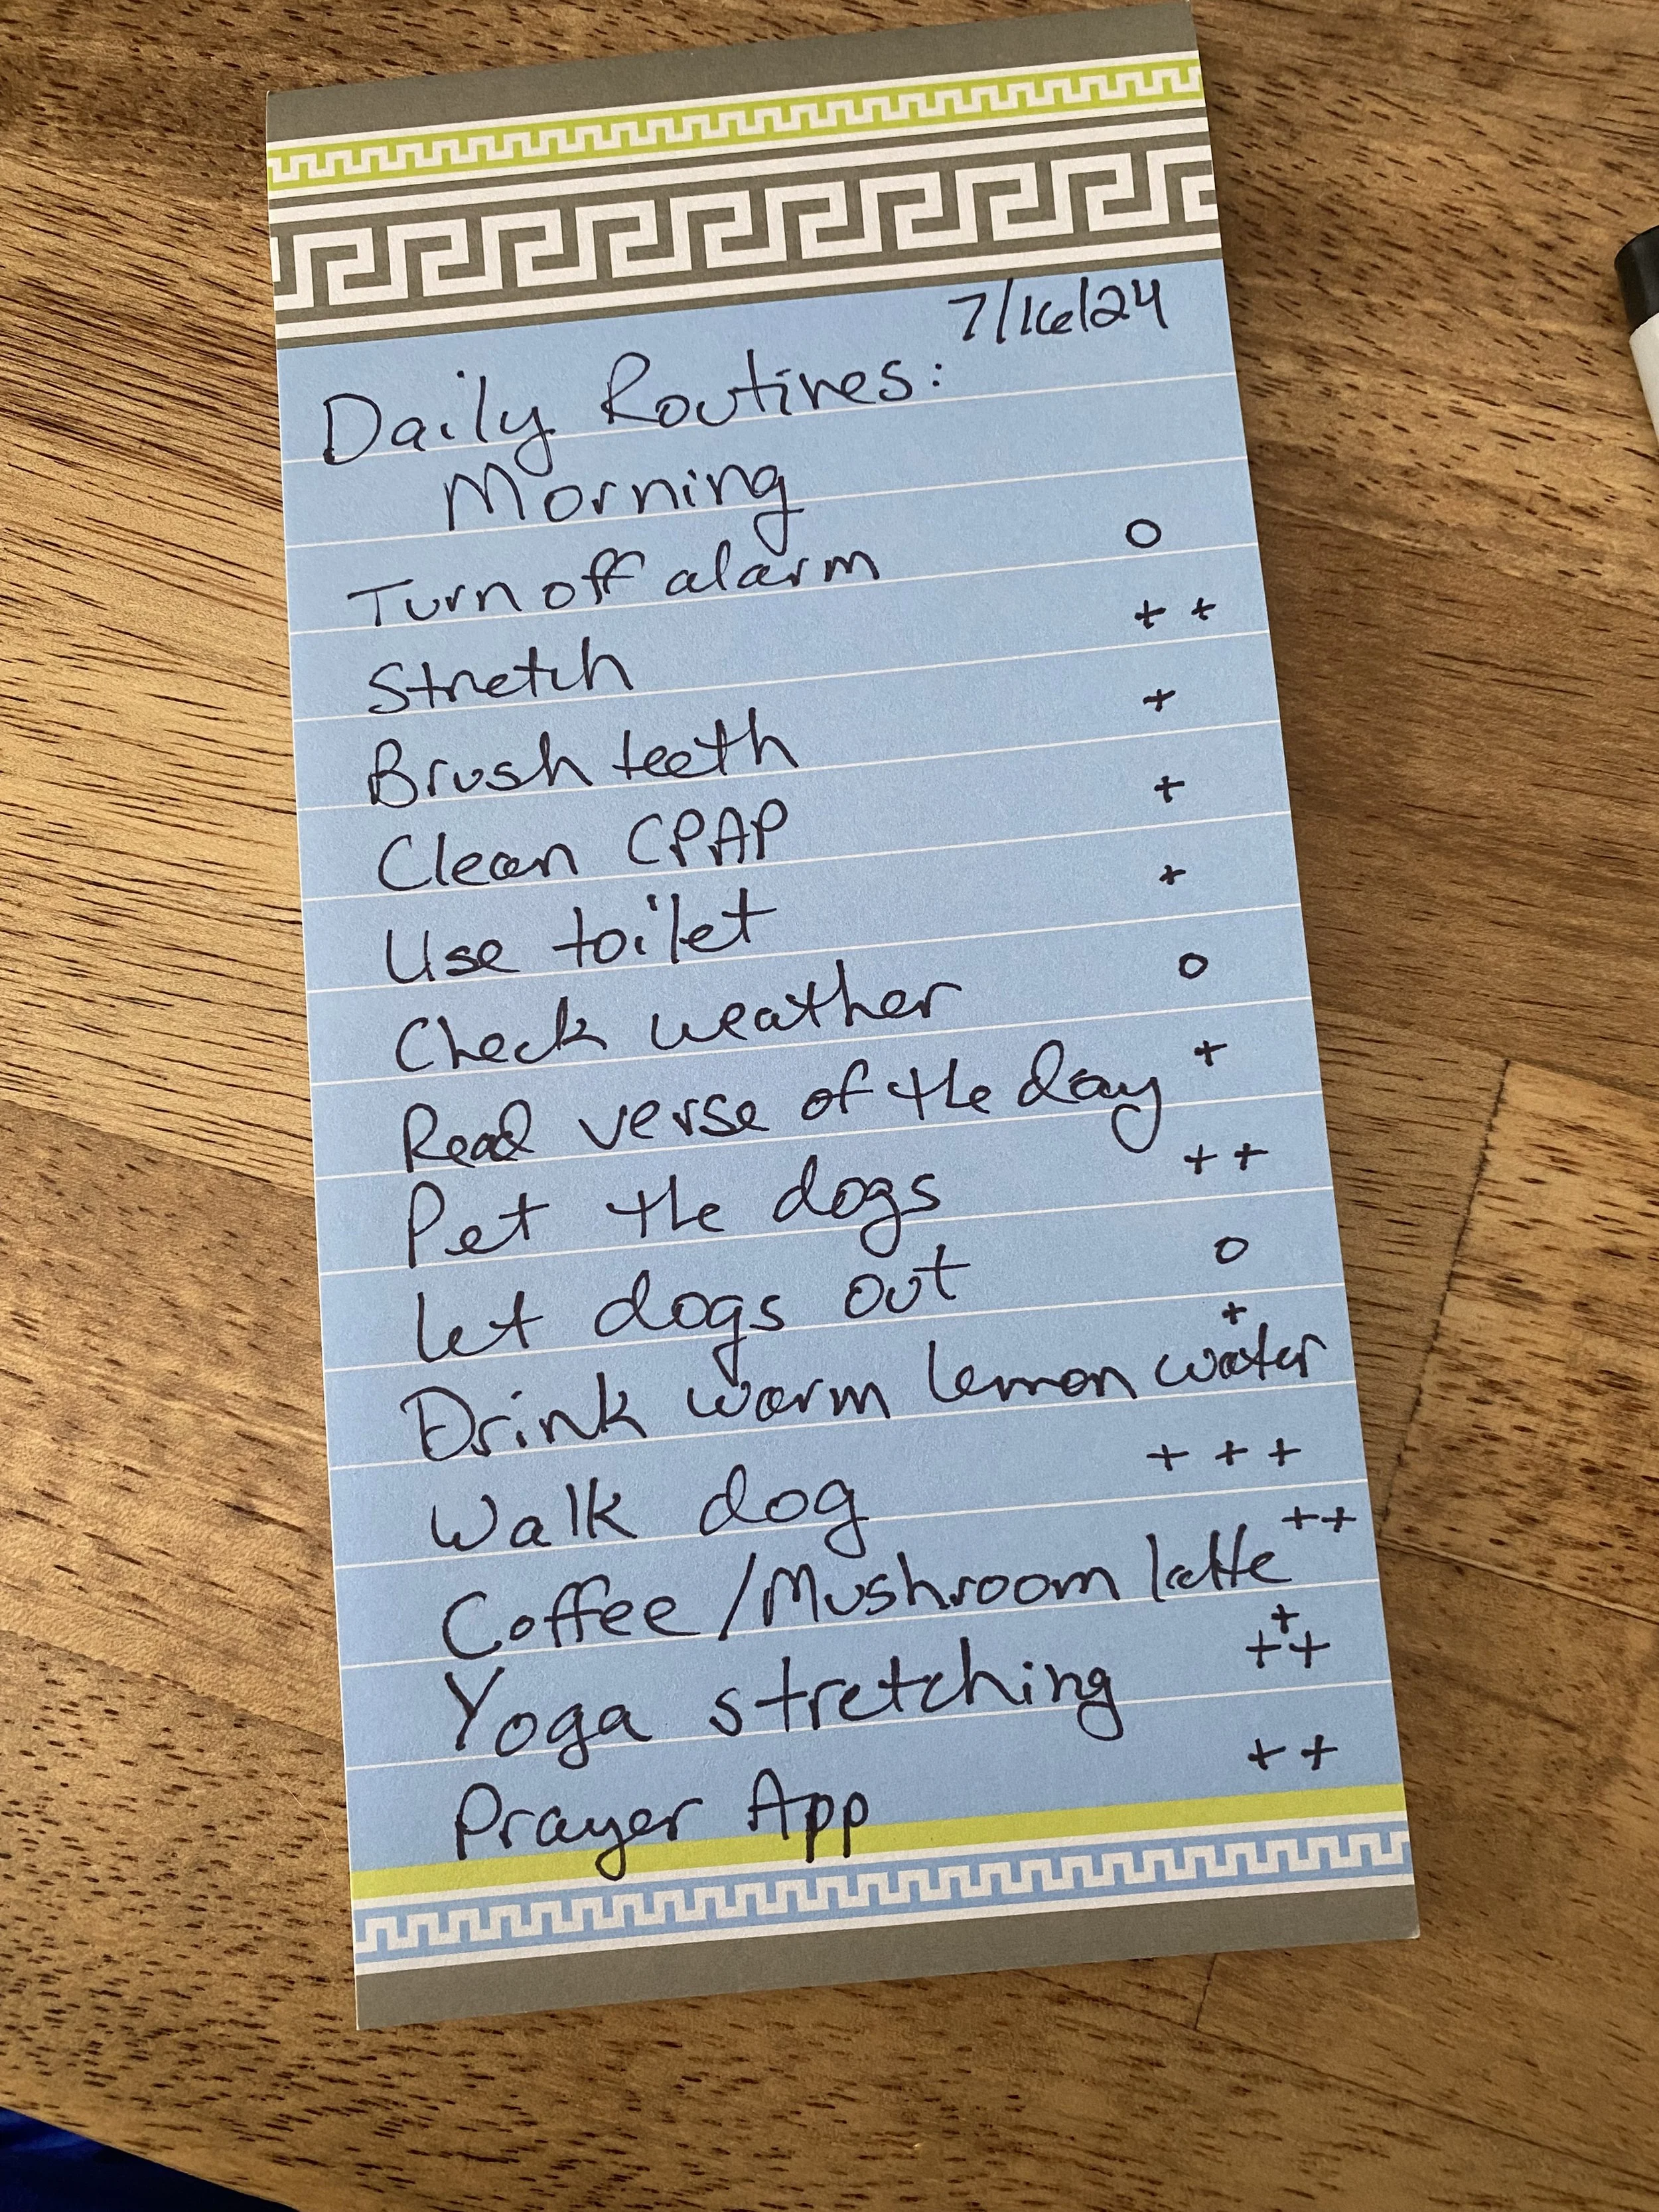 7/16/24
Daily Routines:
Morning
Turn off alarm o
Stretch + +
Brush teeth +
Clean CPAP +
Use toilet +
Check weather o
Read verse of the day +
Pet the dogs + +
Let dogs out o
Drink warm lemon water +
Walk dog + + +
Coffee/Mushroom latte ++
Yoga stretching +++
Prayer App ++